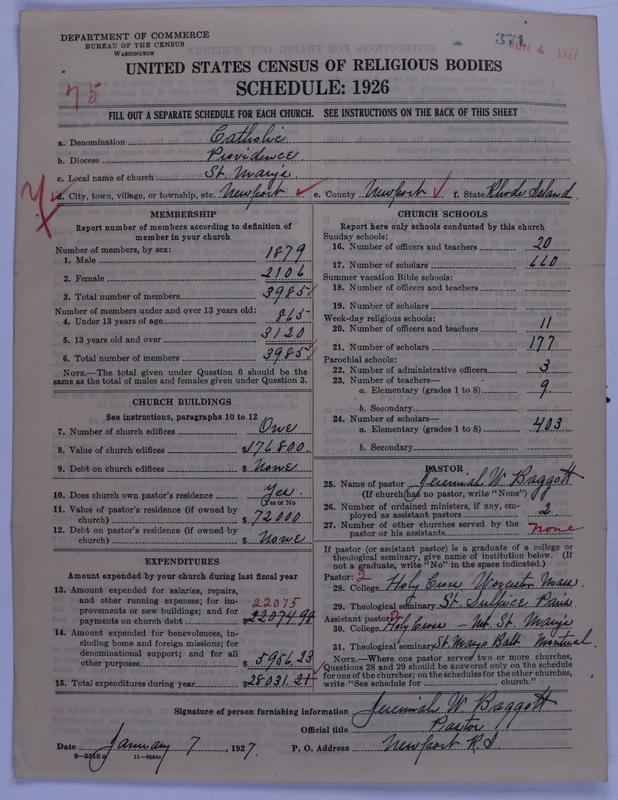 DEPARTMENT OF COMMERCE
BUREAU OF THE CENSUS
WASHINGTON
371
JUN 4 1927
UNITED STATES CENSUS OF RELIGIOUS BODIES
SCHEDULE: 1926
75
FILL OUT A SEPARATE SCHEDULE FOR EACH CHURCH. SEE INSTRUCTIONS ON THE BACK OF THIS SHEET
a. Denomination Catholic
b. Diocese Providence
c. Local name of church St. Marys
d. City, town, village, or township, etc. Newport e. County Newport f. State Rhode Island.
MEMBERSHIP
Report number of members according to definition of
member in your church
Number of members, by sex:
1. Male 1879
2. Female 2106
3. Total number of members 3985
Number of members under and over 13 years old:
4. Under 13 years of age 865
5. 13 years old and over 3120
6. Total number of members 3985
NOTE.—The total given under Question 6 should be
same as the total of males and females given under Question 3.
CHURCH BUILDINGS
See instructions, paragraphs 10 to 12
7. Number of church edifices One
8. Value of church edifices $176800.
9. Debt on church edifices $ None
10. Does church own pastor's residence Yes
(Yes or No)
11. Value of pastor's residence (if owned by
church) $72000
12. Debt on pastor's residence (if owned by
church) $ None
EXPENDITURES
Amount expended by your church during last fiscal year
13. Amount expended for salaries, repairs,
and other running expenses; for im-
provements or new buildings; and for 22075
payments on church debt $22074.98
14. Amount expended for benevolences, in-
cluding home and foreign missions; for
denominational support; and for all
other purposes $5956.23
15. Total expenditures during year $28031.21
CHURCH SCHOOLS
Report here only schools conducted by this church
Sunday schools:
16. Number of officers and teachers 20
17. Number of scholars 660
Summer vacation Bible schools:
18. Number of officers and teachers
19. Number of scholars
Week-day religious schools:
20. Number of officers and teachers 11
21. Number of scholars 177
Parochial schools:
22. Number of administrative officers 3
23. Number of teachers—
a. Elementary (grades 1 to 8) 9.
b. Secondary
24. Number of scholars—
a. Elementary (grades 1 to 8) 403
b. Secondary
PASTOR
25. Name of pastor Jeremiah W. Baggott
(If church has no pastor, write "None")
26. Number of ordained ministers, if any, em-
ployed as assistant pastors 2
27. Number of other churches served by the
pastor or his assistants none
If pastor (or assistant pastor) is a graduate of a college or
theological seminary, give name of institution below. (If
not a graduate, write "No" in the space indicated.)
Pastor: 2
28. College Holy Cross Worcester Mass.
29. Theological seminary St. Sulpice Paris
Assistant pastor: 2
30. College Holy Cross - Mt. St. Marys
31. Theological seminary St Marys Balt. Montreal.
NOTE.—Where one pastor serves two or more churches,
Question 28 and 29 should be answered only on the schedule
for one of the churches; on the schedules for the other churches,
write "See schedule for church."
Signature of person furnishing information Jeremiah W Baggott
Official title Pastor
Date January 7, 1927. P. O. Address Newport R.I